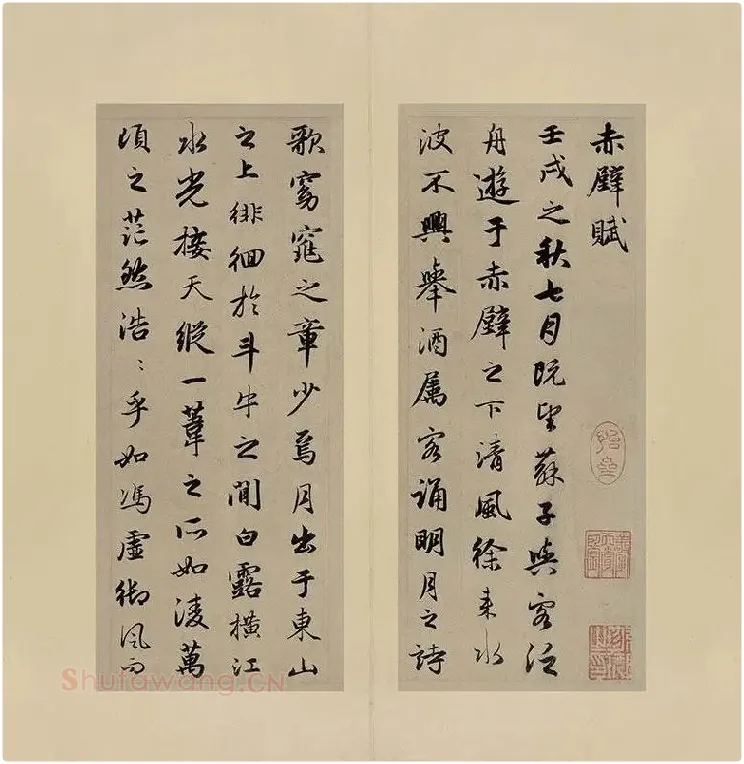 赤壁賦
壬戌之秋七月既望蘇子與客泛
舟遊于赤壁之下清風徐來水
波不興舉酒属客誦明月之詩
歌窈窕之章少焉月出于東山
之上徘徊於斗牛之間白露橫江
水光接天縱一葦之所如凌萬
頃之茫然浩〻乎如馮虛御風而
Shufawang.CN